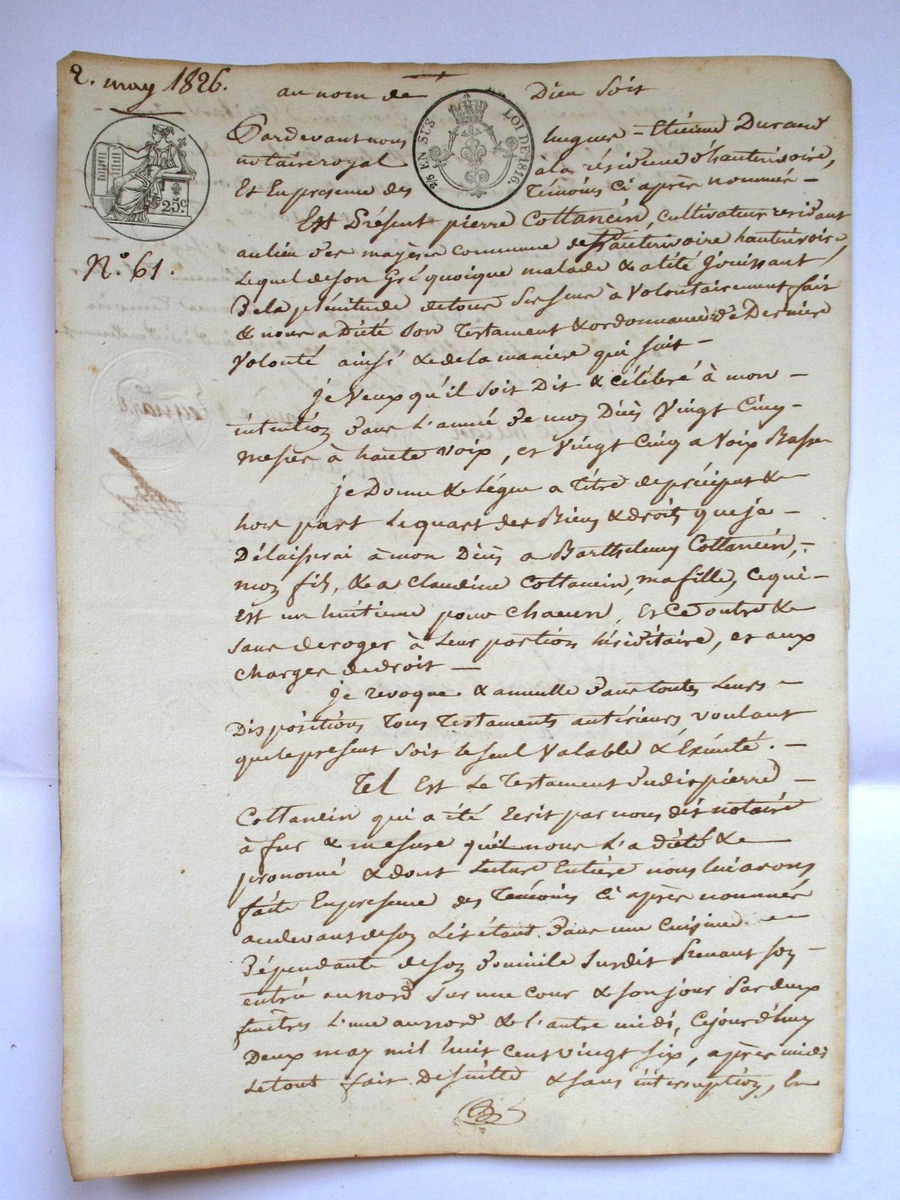 2. may 1826.
au nom de Dieu soit
2/5 EN SUS
LOI DE 1816.
25c.
N.o 61.
Pardevant nous hugues-Etienne Durand
notaire royal à la résidence d'hauterivoire,
Et En presence des Temoins ci après nommés -
Est Présent pierre Cottancin, cultivateur residant
au lieu des commune de hauterivoire,
Lequel de son Gré quoique malade & alité Jouissant
De la plénitude de tous Ses sens à Volontairement fait
& nous a Dicté Son Testament & ordonnance de Derniere
Volonté ainsi & de la maniere qui suit -
je Veux qu'il soit Dit & célébré à mon -
intention dans l'année de mon Décès Vingt Cinq
messes à haute Voix, et Vingt Cinq a Voix Basse
je Donne & Légue a titre de préciput &
hors part Le quart des Biens & droits que je -
Délaisserai à mon Décès a Barthelemy Cottancin, -
mon fils, & a Claudine Cottancin, ma fille, ce qui -
est un huitieme pour chacun, et ce outre &
sans deroger à Leur portion héréditaire, et aux
charges de droit -
je revoque & annulle dans toutes Leurs -
Dispositions Tous Testaments antérieurs voulant
que le present soit le seul Valable & Exécuté. -
Tel Est Le Testament dudit pierre -
Cottancin qui a été Ecrit par nous dit notaire
à fur & mesure qu'il nous l'a dicté &
prononcé & dont Lecture Entière nous lui avons
faite En presence des Temoins ci après nommés
au devant de son Lit étant dans une Cuisine -
Dépendante de son domicile susdit Prenant son -
entrée au nord sur une Cour & son jour par deux
fenêtres l'une au nord & l'autre midi, Cejourd'huy
Deux may mil huit Cent vingt six, après midi
Le tout fait de suitte & sans interruption, En